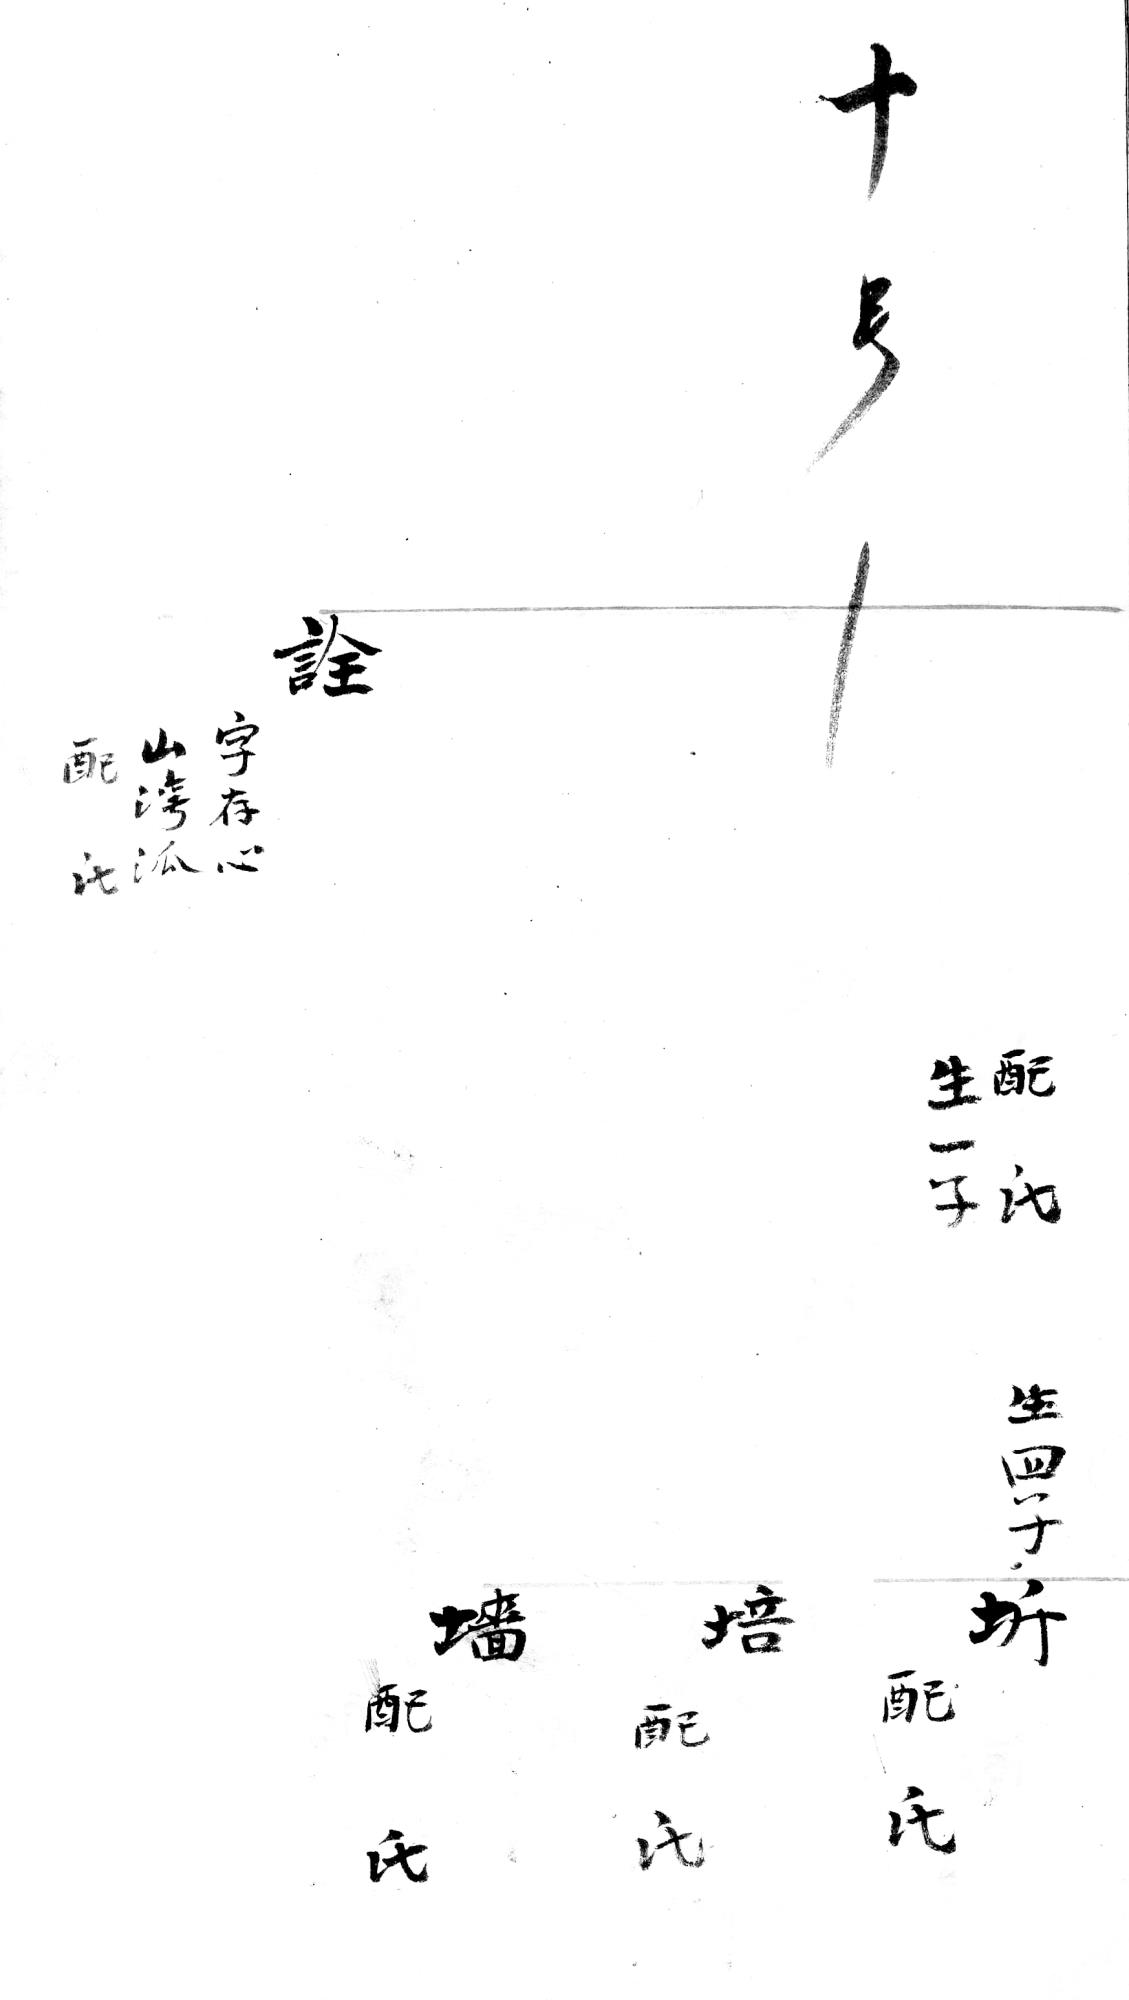 十号
配　氏
生一子
生四子
詮
字存心
山湾派
配　氏
圻
配　氏
培
配　氏
墻
配　氏